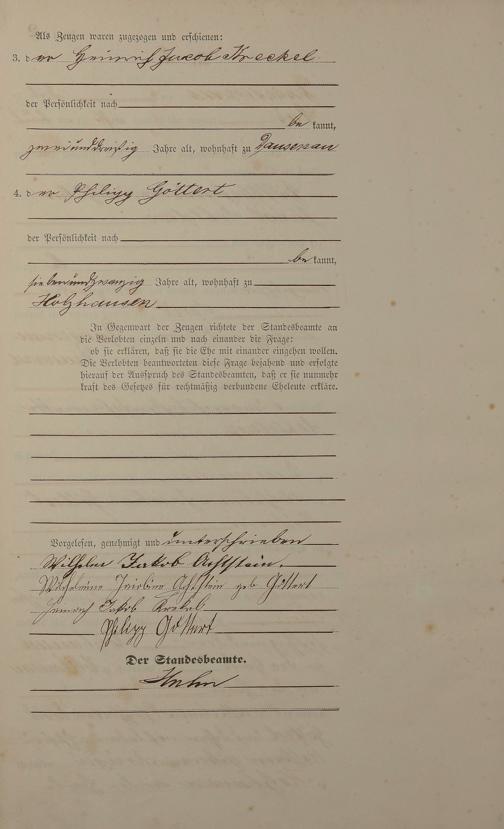 Als Zeugen waren zugezogen und erschienen:
3. der Heinrich Jacob Kreckel
der Persönlichkeit nach
be kannt,
zweiunddreißig Jahre alt, wohnhaft zu Dausenau
4. der Philipp Göttert
der Persönlichkeit nach
be kannt,
siebenundzwanzig Jahre alt, wohnhaft zu
Holzhausen
In Gegenwart der Zeugen richtete der Standesbeamte an
die Verlobten einzeln und nach einander die Frage:
ob sie erklären, daß sie die Ehe mit einander eingehen wollen.
Die Verlobten beantworteten diese Frage bejahend und erfolgte
hierauf der Ausspruch des Standesbeamten, daß er sie nunmehr
kraft des Gesetzes für rechtmäßig verbundene Eheleute erkläre.
Vorgelesen, genehmigt und unterschrieben
Wilhelm Jakob Achtstein.
Wilhelmine Achtstein geb Göttert
Heinrich Jakob Krekel
Philipp Göttert
Der Standesbeamte.